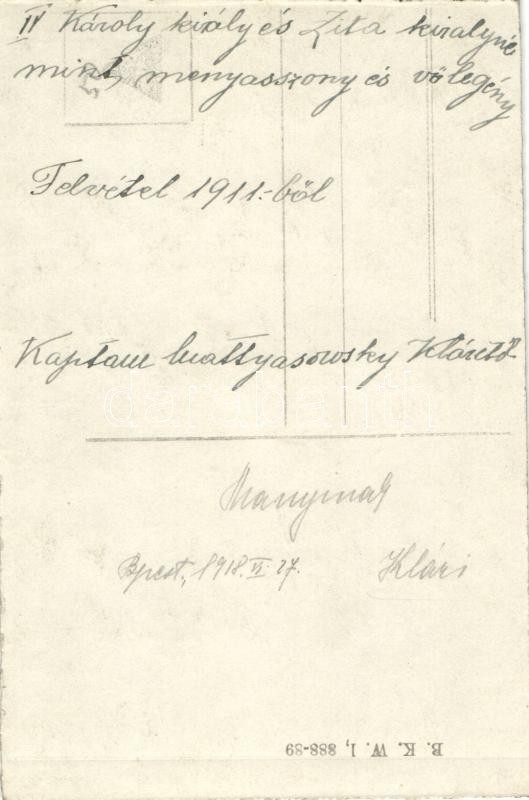 IV Károly király és Zita királyné
mint menyasszony és vőlegény
Felvétel 1911.-ből
Kaptam Mattyasowsky Kláritól
Manyinak
Bpest, 1918. VI. 27.
Klári
B. K. W. I, 888-89